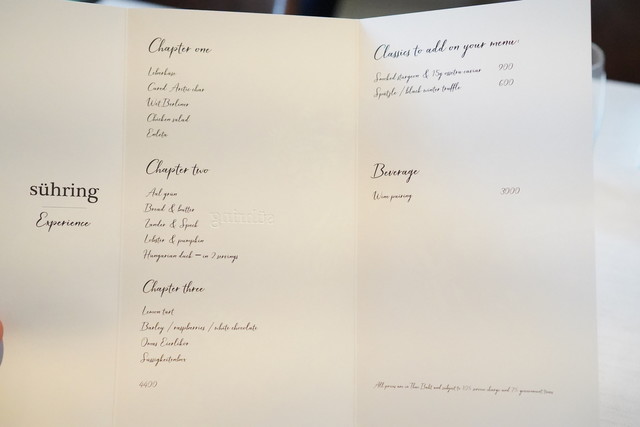 sühring
Experience
Chapter one
Leberkäse
Cured Arctic char
Wet Berliner
Chicken salad
Enleta
Chapter two
Aal grün
Bread & butter
Zander & Speck
Lobster & pumpkin
Hungarian duck – in 2 servings
Chapter three
Lemon tart
Barley / raspberries / white chocolate
Omas Eierlikör
Süssigkeiten
4400
Classics to add on your menu
Smoked sturgeon & 15g oscietra caviar 900
Spätzle / black winter truffle 600
Beverage
Wine pairing 3900
All prices are in Thai Baht and subject to 10% service charge and 7% government taxes